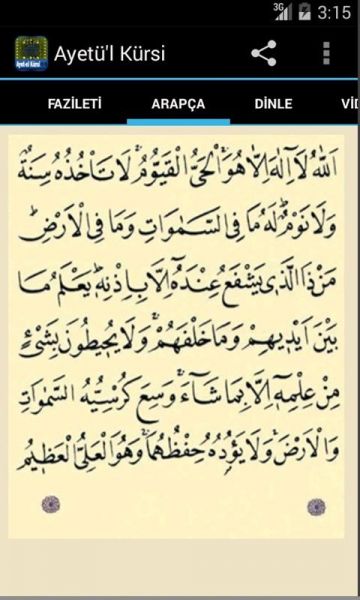 3G 3:15
Ayetü'l Kürsi
FAZİLETİ ARAPÇA DİNLE VİD
اَللّٰهُ لَٓا اِلٰهَ اِلَّا هُوَۚ اَلْحَيُّ الْقَيُّومُۚ لَا تَأْخُذُهُ سِنَةٌ
وَلَا نَوْمٌۜ لَهُ مَا فِي السَّمٰوَاتِ وَمَا فِي الْاَرْضِۜ
مَنْ ذَا الَّذ۪ي يَشْفَعُ عِنْدَهُٓ اِلَّا بِاِذْنِه۪ۜ يَعْلَمُ مَا
بَيْنَ اَيْد۪يهِمْ وَمَا خَلْفَهُمْۚ وَلَا يُح۪يطُونَ بِشَيْءٍ
مِنْ عِلْمِه۪ٓ اِلَّا بِمَا شَٓاءَۚ وَسِعَ كُرْسِيُّهُ السَّمٰوَاتِ
وَالْاَرْضَۚ وَلَا يَؤُ۫دُهُ حِفْظُهُمَاۚ وَهُوَ الْعَلِيُّ الْعَظ۪يمُ